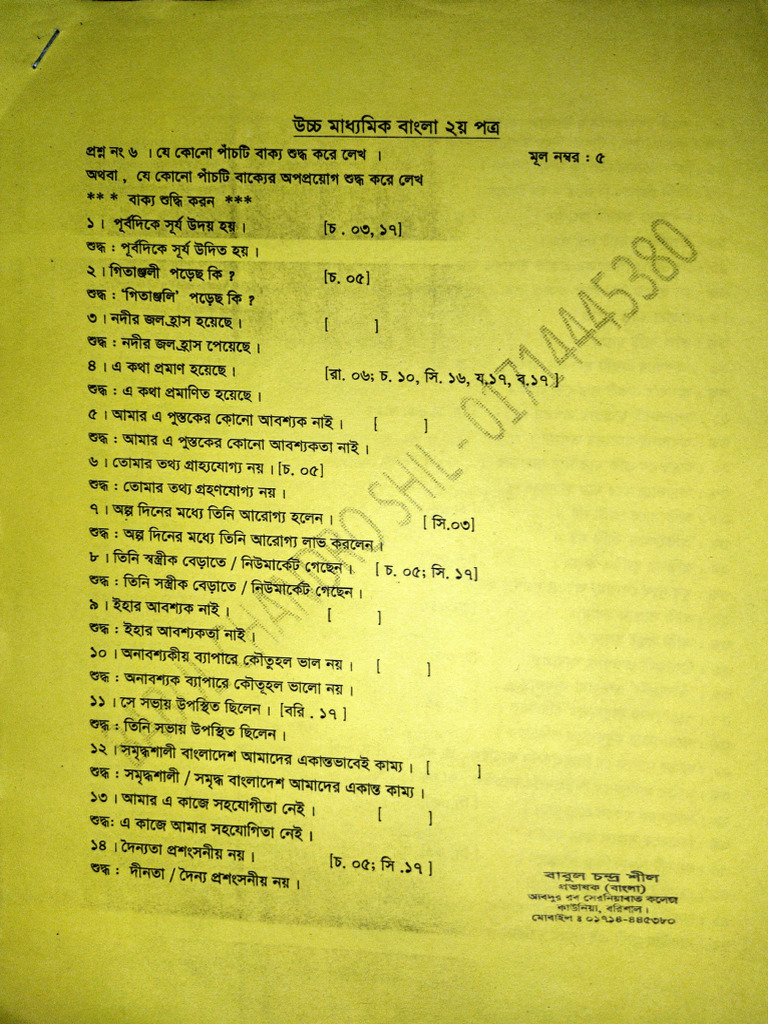 উচ্চ মাধ্যমিক বাংলা ২য় পত্র
প্রশ্ন নং ৬ । যে কোনো পাঁচটি বাক্য শুদ্ধ করে লেখ । মূল নম্বর : ৫
অথবা , যে কোনো পাঁচটি বাক্যের অপপ্রয়োগ শুদ্ধ করে লেখ
** * বাক্য শুদ্ধি করন ***
১ । পূর্বদিকে সূর্য উদয় হয় । [চ . ০৩, ১৭]
শুদ্ধ : পূর্বদিকে সূর্য উদিত হয় ।
২ । গিতাঞ্জলী পড়েছ কি ? [চ. ০৫]
শুদ্ধ : ‘গিতাঞ্জলি’ পড়েছ কি ?
৩ । নদীর জল হ্রাস হয়েছে । [ ]
শুদ্ধ : নদীর জল হ্রাস পেয়েছে ।
৪ । এ কথা প্রমাণ হয়েছে । [রা. ০৬; চ. ১০, সি. ১৬, য.১৭, ব.১৭ ]
শুদ্ধ : এ কথা প্রমাণিত হয়েছে ।
৫ । আমার এ পুস্তকের কোনো আবশ্যক নাই । [ ]
শুদ্ধ : আমার এ পুস্তকের কোনো আবশ্যকতা নাই ।
৬ । তোমার তথ্য গ্রাহ্যযোগ্য নয় । [চ. ০৫]
শুদ্ধ : তোমার তথ্য গ্রহণযোগ্য নয় ।
৭ । অল্প দিনের মধ্যে তিনি আরোগ্য হলেন । [ সি.০৩]
শুদ্ধ : অল্প দিনের মধ্যে তিনি আরোগ্য লাভ করলেন ।
৮ । তিনি স্বস্ত্রীক বেড়াতে / নিউমার্কেট গেছেন । [ চ. ০৫; সি. ১৭]
শুদ্ধ : তিনি সস্ত্রীক বেড়াতে / নিউমার্কেট গেছেন ।
৯ । ইহার আবশ্যক নাই । [ ]
শুদ্ধ : ইহার আবশ্যকতা নাই ।
১০ । অনাবশ্যকীয় ব্যাপারে কৌতুহল ভাল নয় । [ ]
শুদ্ধ : অনাবশ্যক ব্যাপারে কৌতূহল ভালো নয় ।
১১ । সে সভায় উপস্থিত ছিলেন । [বরি . ১৭ ]
শুদ্ধ : তিনি সভায় উপস্থিত ছিলেন ।
১২ । সমৃদ্ধশালী বাংলাদেশ আমাদের একান্তভাবেই কাম্য । [ ]
শুদ্ধ : সমৃদ্ধশালী / সমৃদ্ধ বাংলাদেশ আমাদের একান্ত কাম্য ।
১৩ । আমার এ কাজে সহযোগীতা নেই । [ ]
শুদ্ধ: এ কাজে আমার সহযোগিতা নেই ।
১৪ । দৈন্যতা প্রশংসনীয় নয় । [চ. ০৫; সি .১৭ ]
শুদ্ধ : দীনতা / দৈন্য প্রশংসনীয় নয় ।
CHANDRO SHIL - 01714445380
বাবুল চন্দ্র শীল
প্রভাষক (বাংলা)
আবদুর রব সেরনিয়াবাত কলেজ
কাউনিয়া, বরিশাল ।
মোবাইল ঃ ০১৭১৪-৪৪৫৩৮০